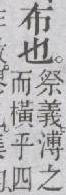 布也。
祭義溥之
而橫乎四